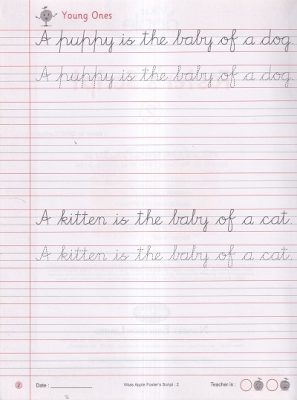 Young Ones
A puppy is the baby of a dog.
A puppy is the baby of a dog.
A kitten is the baby of a cat.
A kitten is the baby of a cat.
2 Date : Wise Apple Foster's Script : 2 Teacher is :